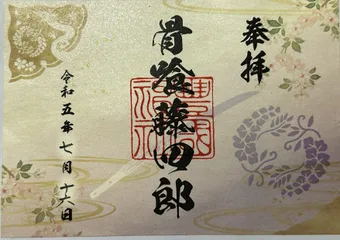 奉拝
骨喰藤四郎
令和五年七月十六日